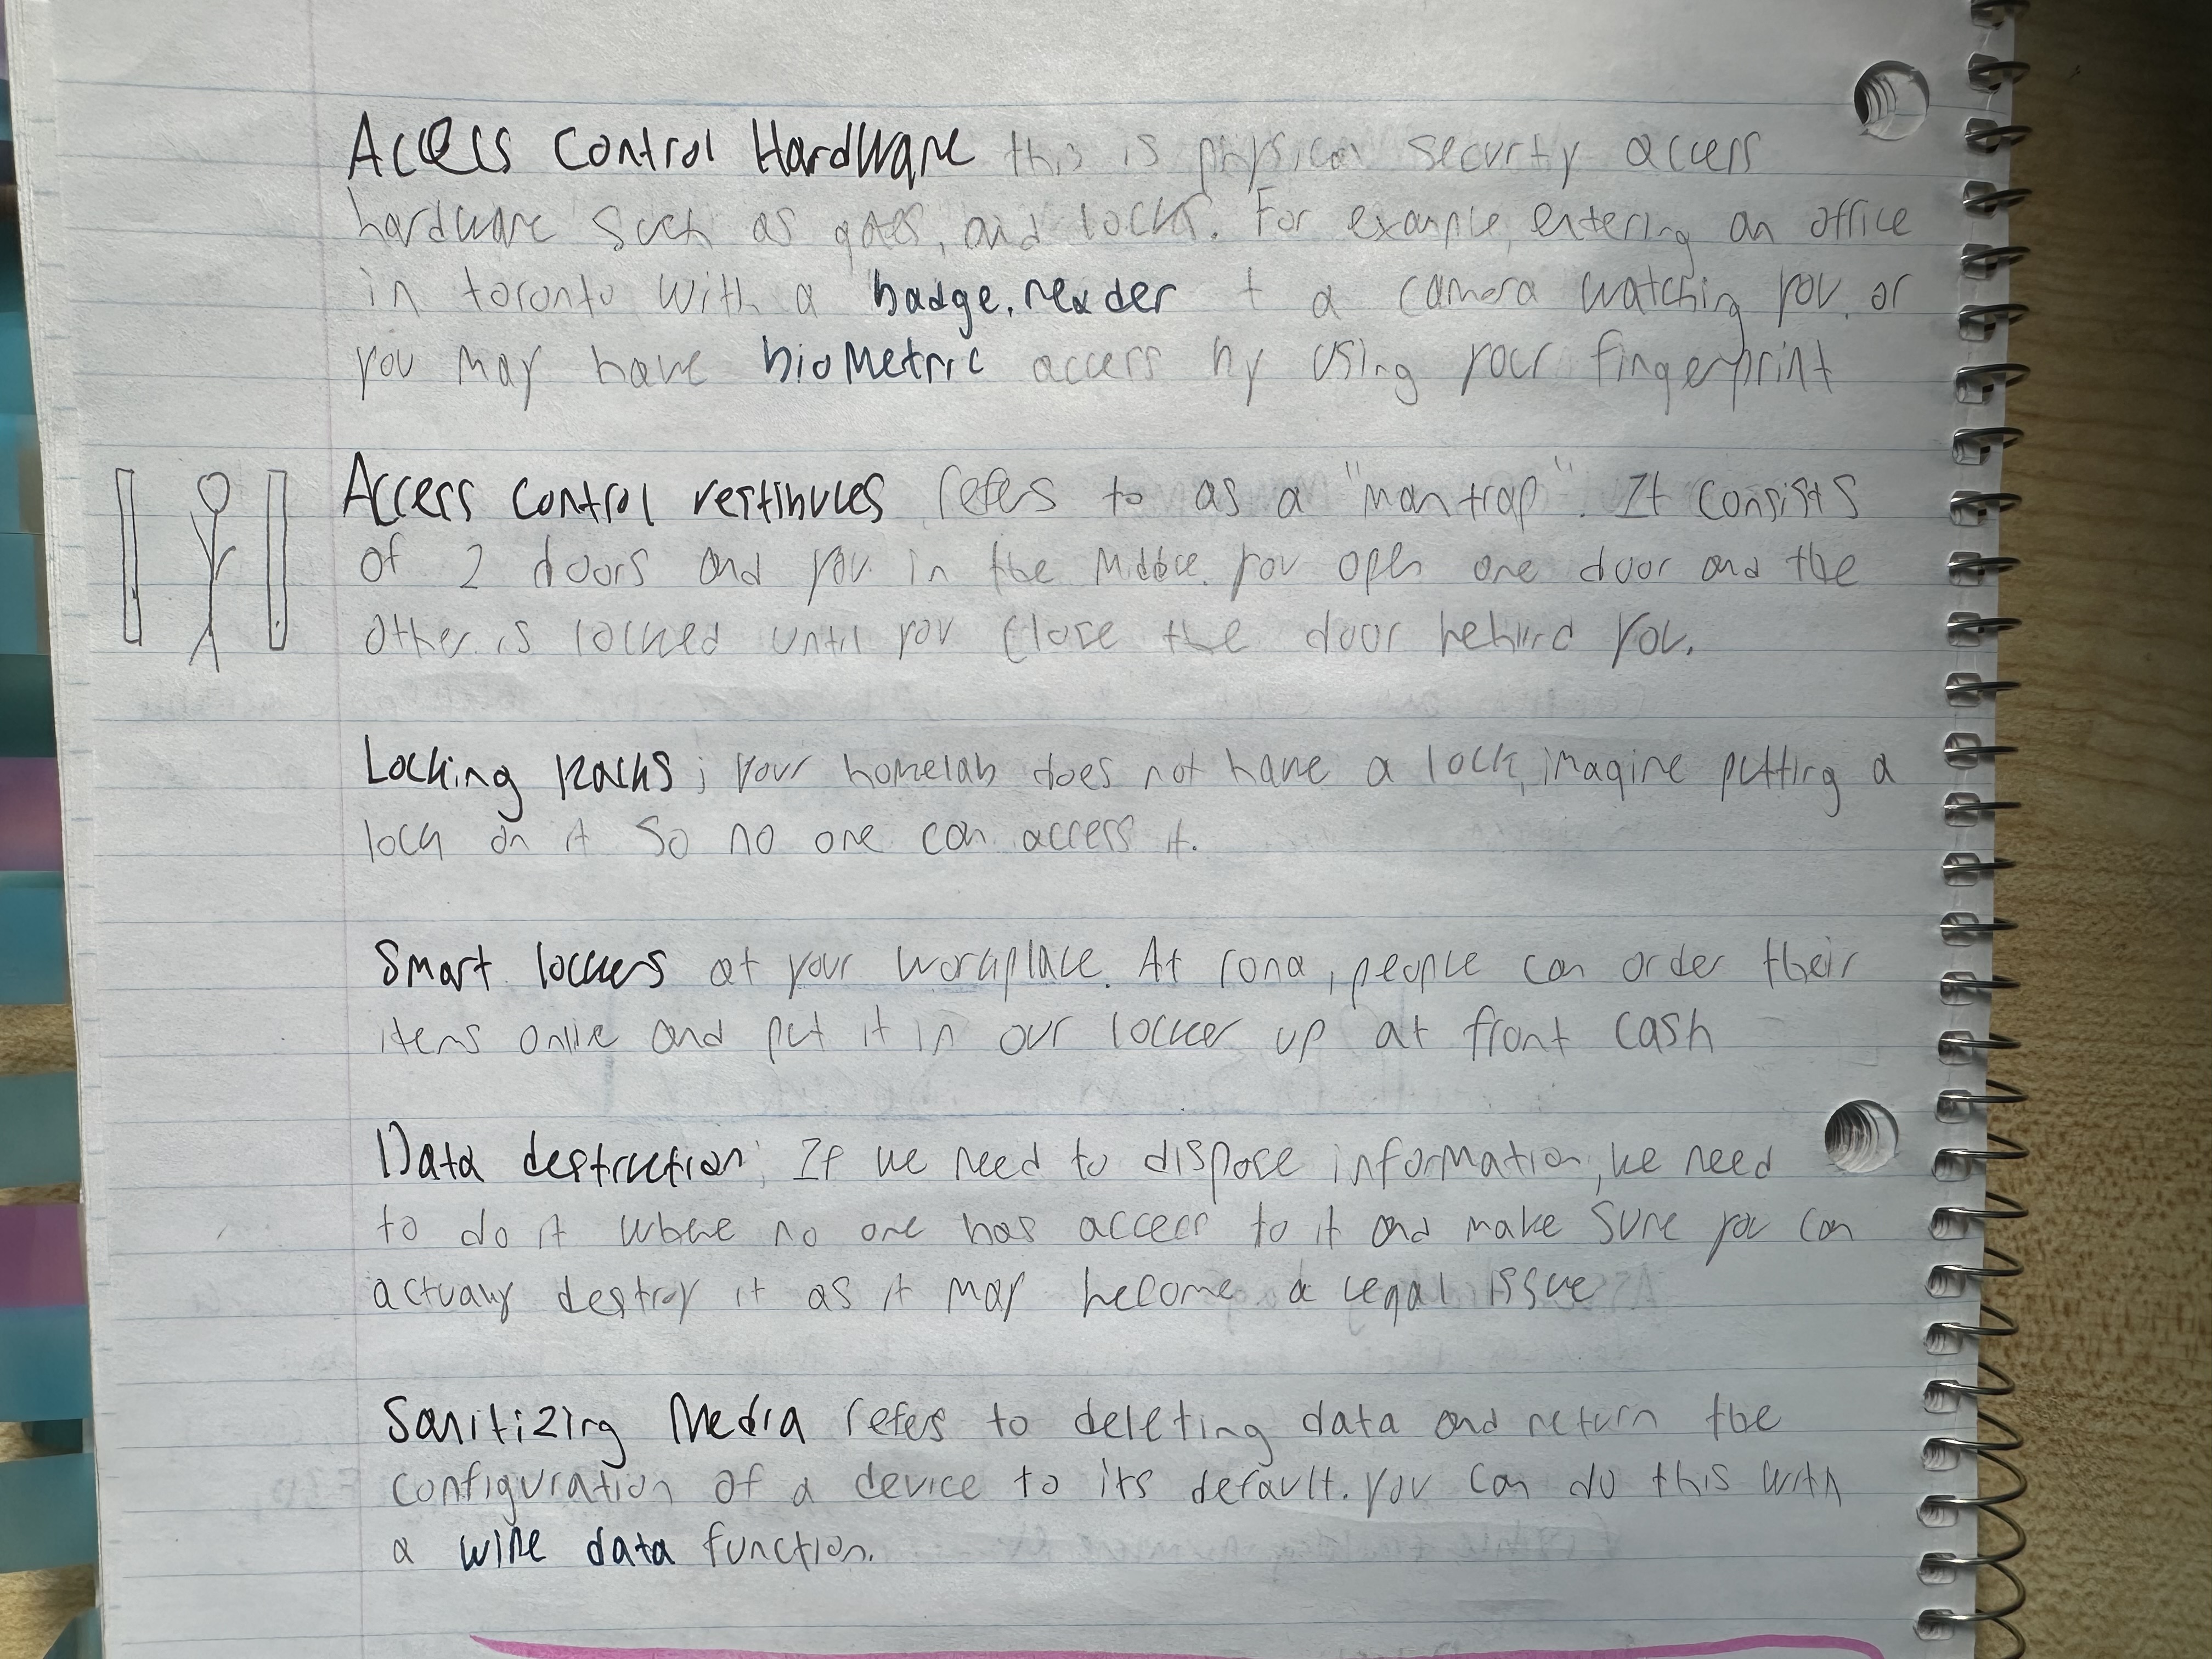 Access Control Hardware this is physical security access
hardware such as gates, and locks. For example, entering an office
in toronto with a badge reader + a camera watching you or
you may have bioMetric access by using your fingerprint
Access control vestibules refers to as a "man trap". It consists
of 2 doors and you in the middle. you open one door and the
other is locked until you close the door behind you.
Locking Racks; your homelab does not have a lock, imagine putting a
lock on it so no one can access it.
Smart lockers at your workplace. At rona, people can order their
items online and put it in our locker up at front cash
Data destruction; If we need to dispose information, we need
to do it where no one has access to it and make sure you can
actually destroy it as it may become a legal issue
Sanitizing Media refers to deleting data and return the
configuration of a device to its default. you can do this with
a wipe data function.